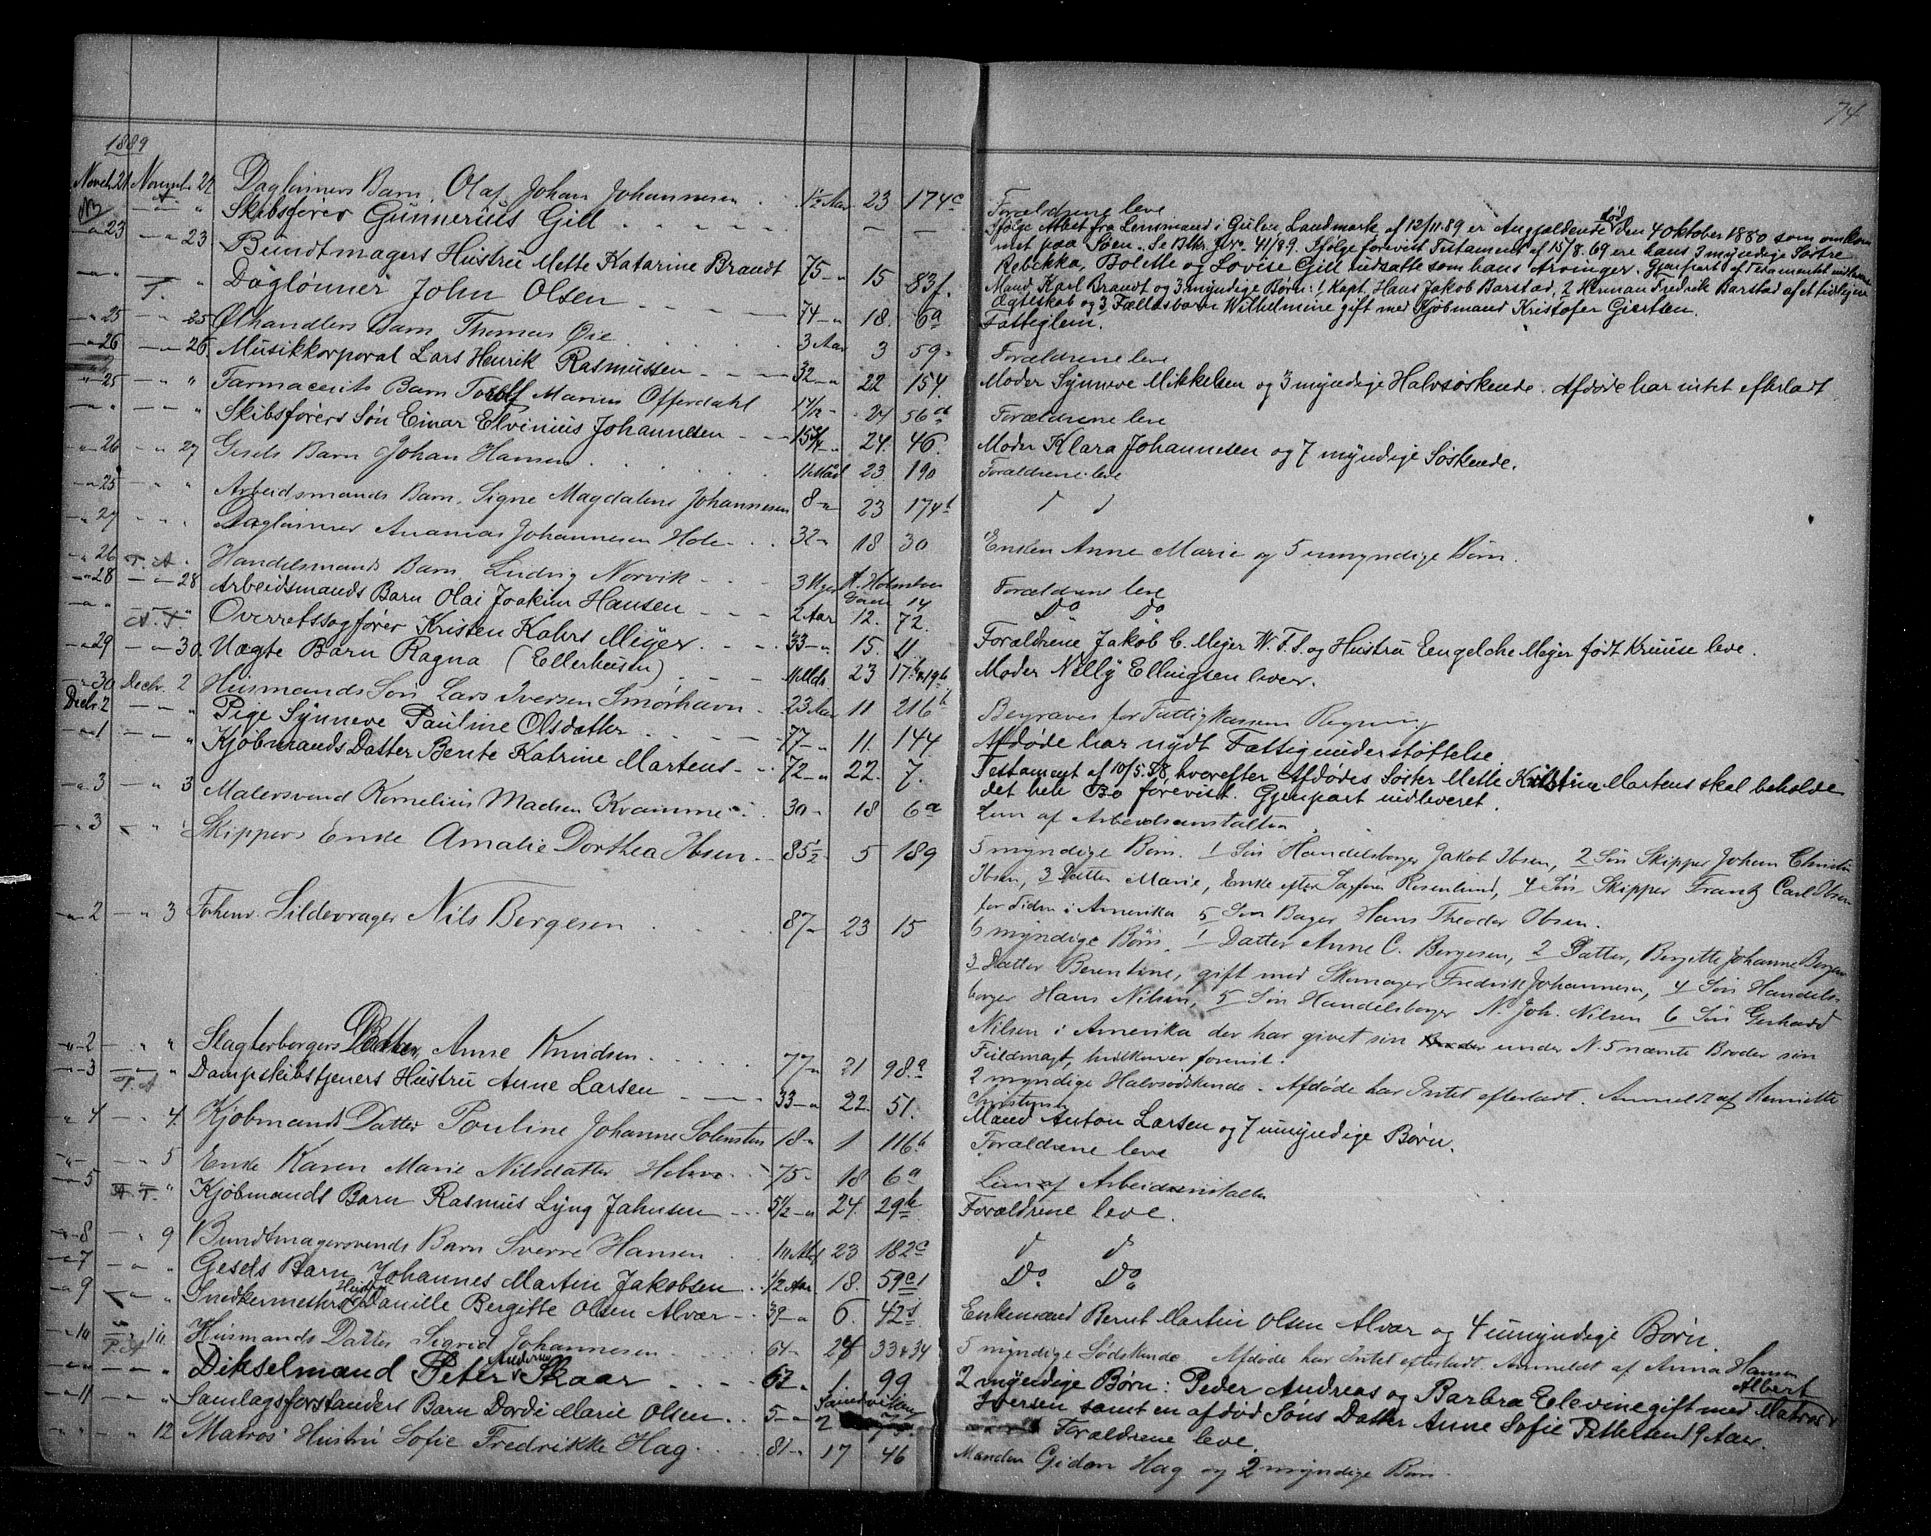 74
1889
Novebr 21 Novemb. 21 Dagløiners Barn, Olaf Johan Johannesen 1½ Aar 23 174c Forældrene leve
Skibsfører Gunnerius Gill — — — Ifølge Attest fra Lensmand i Gulen Landmark af 12/11.89 er Angjældende død den 4 Oktober 1880 som omkom
met paa Søen. Se Btkr. Jr. No. 41/89. Ifølge forevist Testament af 15/8.69 ere hans 3 myndige Søstre
Rebekka, Bolette og Lovise Gill indsatte som hans Arvinger. Gjenpart af Testamentet indleveret
23 23 Bundtmagers Hustru Mette Katarine Brandt 75 15 83f. Mand, Karl Brandt og 3 myndige Børn: 1 Kapt. Hans Jakob Barstad, 2 Herman Fredrik Barstad af et tidligere
Ægteskab og 3 Fællesbarn Wilhelmine gift med Kjøbmand Kristofer Giertsen.
T. Daglønner John Olsen 74 18. 6a Fattiglem.
25 25 Ølhandlers Barn Thomas Øie 3 Aar 3 59 Forældrene leve
26 26 Musikkorporal Lars Henrik Rasmussen 32 22 154. Moder Synneve Mikkelsen og 3 myndige Halvsøskende. Afdøde har intet efterladt
25 " Farmaceuts Barn Torolf Marius Offerdahl 1 4/12 24 56 Forældrene leve
" " Skibsførers Søn Einar Elvinius Johannesen 15¾ 24. 46. Moder Klara Johannesen og 7 myndige Søskende.
26 27 Gesels Barn Johan Hansen 11 Mdr 23 190 Forældrene leve
25 " Arbeidsmands Barn, Signe Magdalene Johannesen 8 23 174b d d
27 " Dagløinner Ananias Johannesen Hole 32 18 30 Enken Anne Marie og 5 umyndige Børn.
26 T. A. Handelsmands Barn Ludvig Norvik 3 Uger 14 Forældrene leve
28 28 Arbeidsmands Barn Olai Joakim Hansen 2 Aar 12. 72. Do Do
" A. T. " Overretssagfører Kristen Kahrs Meyer 33 15. 11. Forældrene Jakob C. Meyer W. T. S. og Hustru Engelche Meyer født Kruuse leve.
29 30. Uægte Barn Ragna (Ellerhusen) 11 Mdr. 23 Moder Nelly Ellingsen lever.
30 Decbr. 2 Husmands Søn Lars Iversen Smørhavn 23 Aar 11 216b Begraves for Fattigkassens Regning
Decbr 2 " Pige Synneve Pauline Olsdatter 77 11. 144 Afdøde har nydt Fattigunderstøttelse
1 " Kjøbmands Datter Bente Katrine Martens 72 22. 7. Testament af 10/5.58, hvorefter Afdødes Søster Mette Kristine Martens skal beholde
det hele Bo forevist. Gjenpart indleveret.
3 3 Malersvend Kornelius Madsen Kramme 30 18 6a Lem af Arbeidsanstalten
3 " Skippers Enke Amalie Dorthea Ibsen 85½ 5 189 5 myndige Børn. 1 Søn Handelsborger Jakob Ibsen, 2 Søn Skipper Johan Christian
Ibsen, 3 Datter Marie, Enke efter Sagfører Rosenlund, 4 Søn Skipper Frantz Carl Ibsen
for Tiden i Amerika 5 Søn Bager Hans Theodor Ibsen.
2 3 Forhenv. Sildevrager Nils Bergesen 87 23 15 6 myndige Børn. 1 Datter Anne C. Bergesen, 2 Datter, Bergitte Johanne Bergesen
3 Datter Berentine, gift med Skomager Fredrik Johannesen, 4 Søn Handels-
borger Hans Nilsen, 5 Søn Handelsborger N. Joh. Nilsen 6 Søn Gerhard
Nilsen i Amerika der har givet sin under N. 5 nævnte Broder sin
Fuldmagt, hvilken er forevist.
2 " Slagterborgers Datter Anne Knudsen 77 21 98.a 2 myndige Halvsødskende. Afdøde har Intet efterladt. Anmeldt af Henriette
Christensen
3 T. A " Dampskibstjeners Hustru Anne Larsen 33 22. 51. Mand Anton Larsen og 7 umyndige Børn.
4 4. Kjøbmands Datter Pouline Johanne Solensten 18 1 116b Forældrene leve
" 5 Enke Karen Marie Nilsdatter Holm 75 18 6a Lem af Arbeidsanstalten
5 A. T. " Kjøbmands Barn Rasmus Lyng Jahnsen 5½ 24. 29b Forældrene leve.
8 9 Bundtmagersvends Barn Sverre Hansen 23 182c d d
7 " Gesels Barn Johannes Martin Jakobsen ½ Aar 18. 59c1 Do. Do.
9 " Snedkermesters Hustru Danille Bergitte Olsen Alvær 39 6. 42s. Enkemand Bernt Martin Olsen Alvær og 4 umyndige Børn.
10 10. Husmands Datter Sigrid Johannesen 64 24 33&34 5 myndige Sødskende. Afdøde har Intet efterladt. Anmeldt af Anna Hansen
T. A " Dikselmand Peter Andersen Skaar 67 1 99 2 myndige Børn: Peder Andreas og Barbra Elevine gift med Matros Albert
Iversen samt en afdød Søns Datter Anne Sofie Pettersen 19 Aar.
11 " Samlagsforstanders Barn Dordi Marie Olsen 5 2 Forældrene leve.
" 12 Matros' Hustru Sofie Fredrikke Hag 81 17 46 Manden Gideon Hag og 2 myndige Børn.